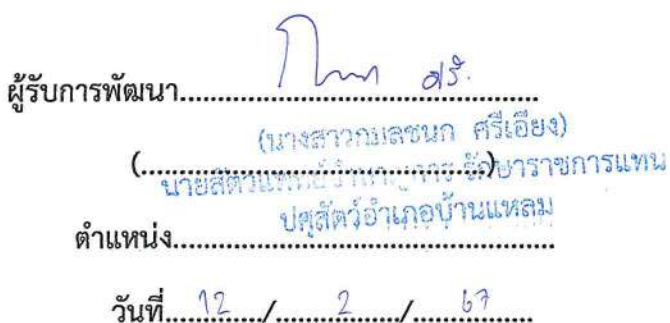 ผู้รับการพัฒนา............................................................
(นางสาวกมลชนก ศรีเอียง)
(............................................................)
นายสัตวแพทย์ชำนาญการ รักษาราชการแทน
ปศุสัตว์อำเภอบ้านแหลม
ตำแหน่ง............................................................
วันที่.....12....../.......2......../......67..........